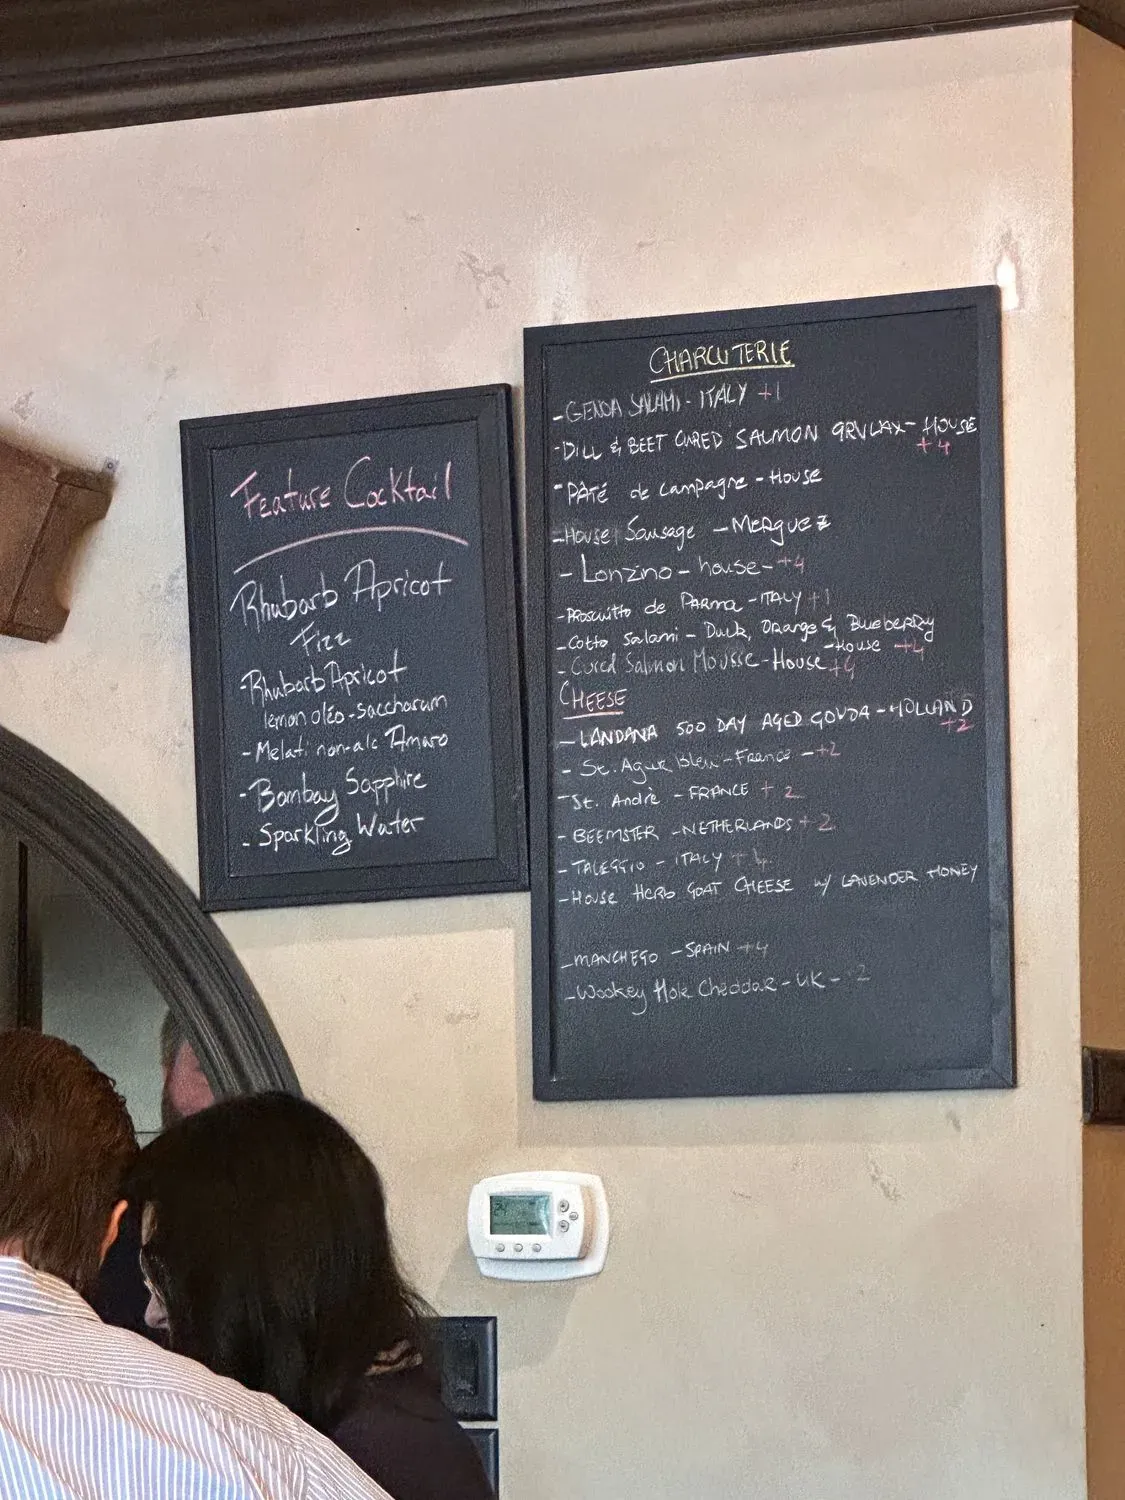 Feature Cocktail
Rhubarb Apricot
Fizz
-Rhubarb Apricot
lemon oléo-saccharum
-Melati non-alc Amaro
-Bombay Sapphire
- Sparkling Water
CHARCUTERIE
-GENOA SALAMI - ITALY +1
-DILL & BEET CURED SALMON GRVLAX - HOUSE
+4
-PÂTÉ de Campagne - House
-House Sausage - Merguez
- Lonzino - house - +4
-Proscuitto de Parma - ITALY +1
-Cotto Salami - Duck, Orange & Blueberry
-House +4
-Cured Salmon Mousse - House +4
CHEESE
- LANDANA 500 DAY AGED GOUDA - HOLLAND
+2
- St. Agur Bleu - France - +2
-St. Andrè - FRANCE + 2
- BEEMSTER - NETHERLANDS + 2
- TALEGGIO - ITALY +
-House Herb GOAT CHEESE w/ LAVENDER HONEY
-MANCHEGO - SPAIN +4
-Wookey Hole Cheddar - UK - 2